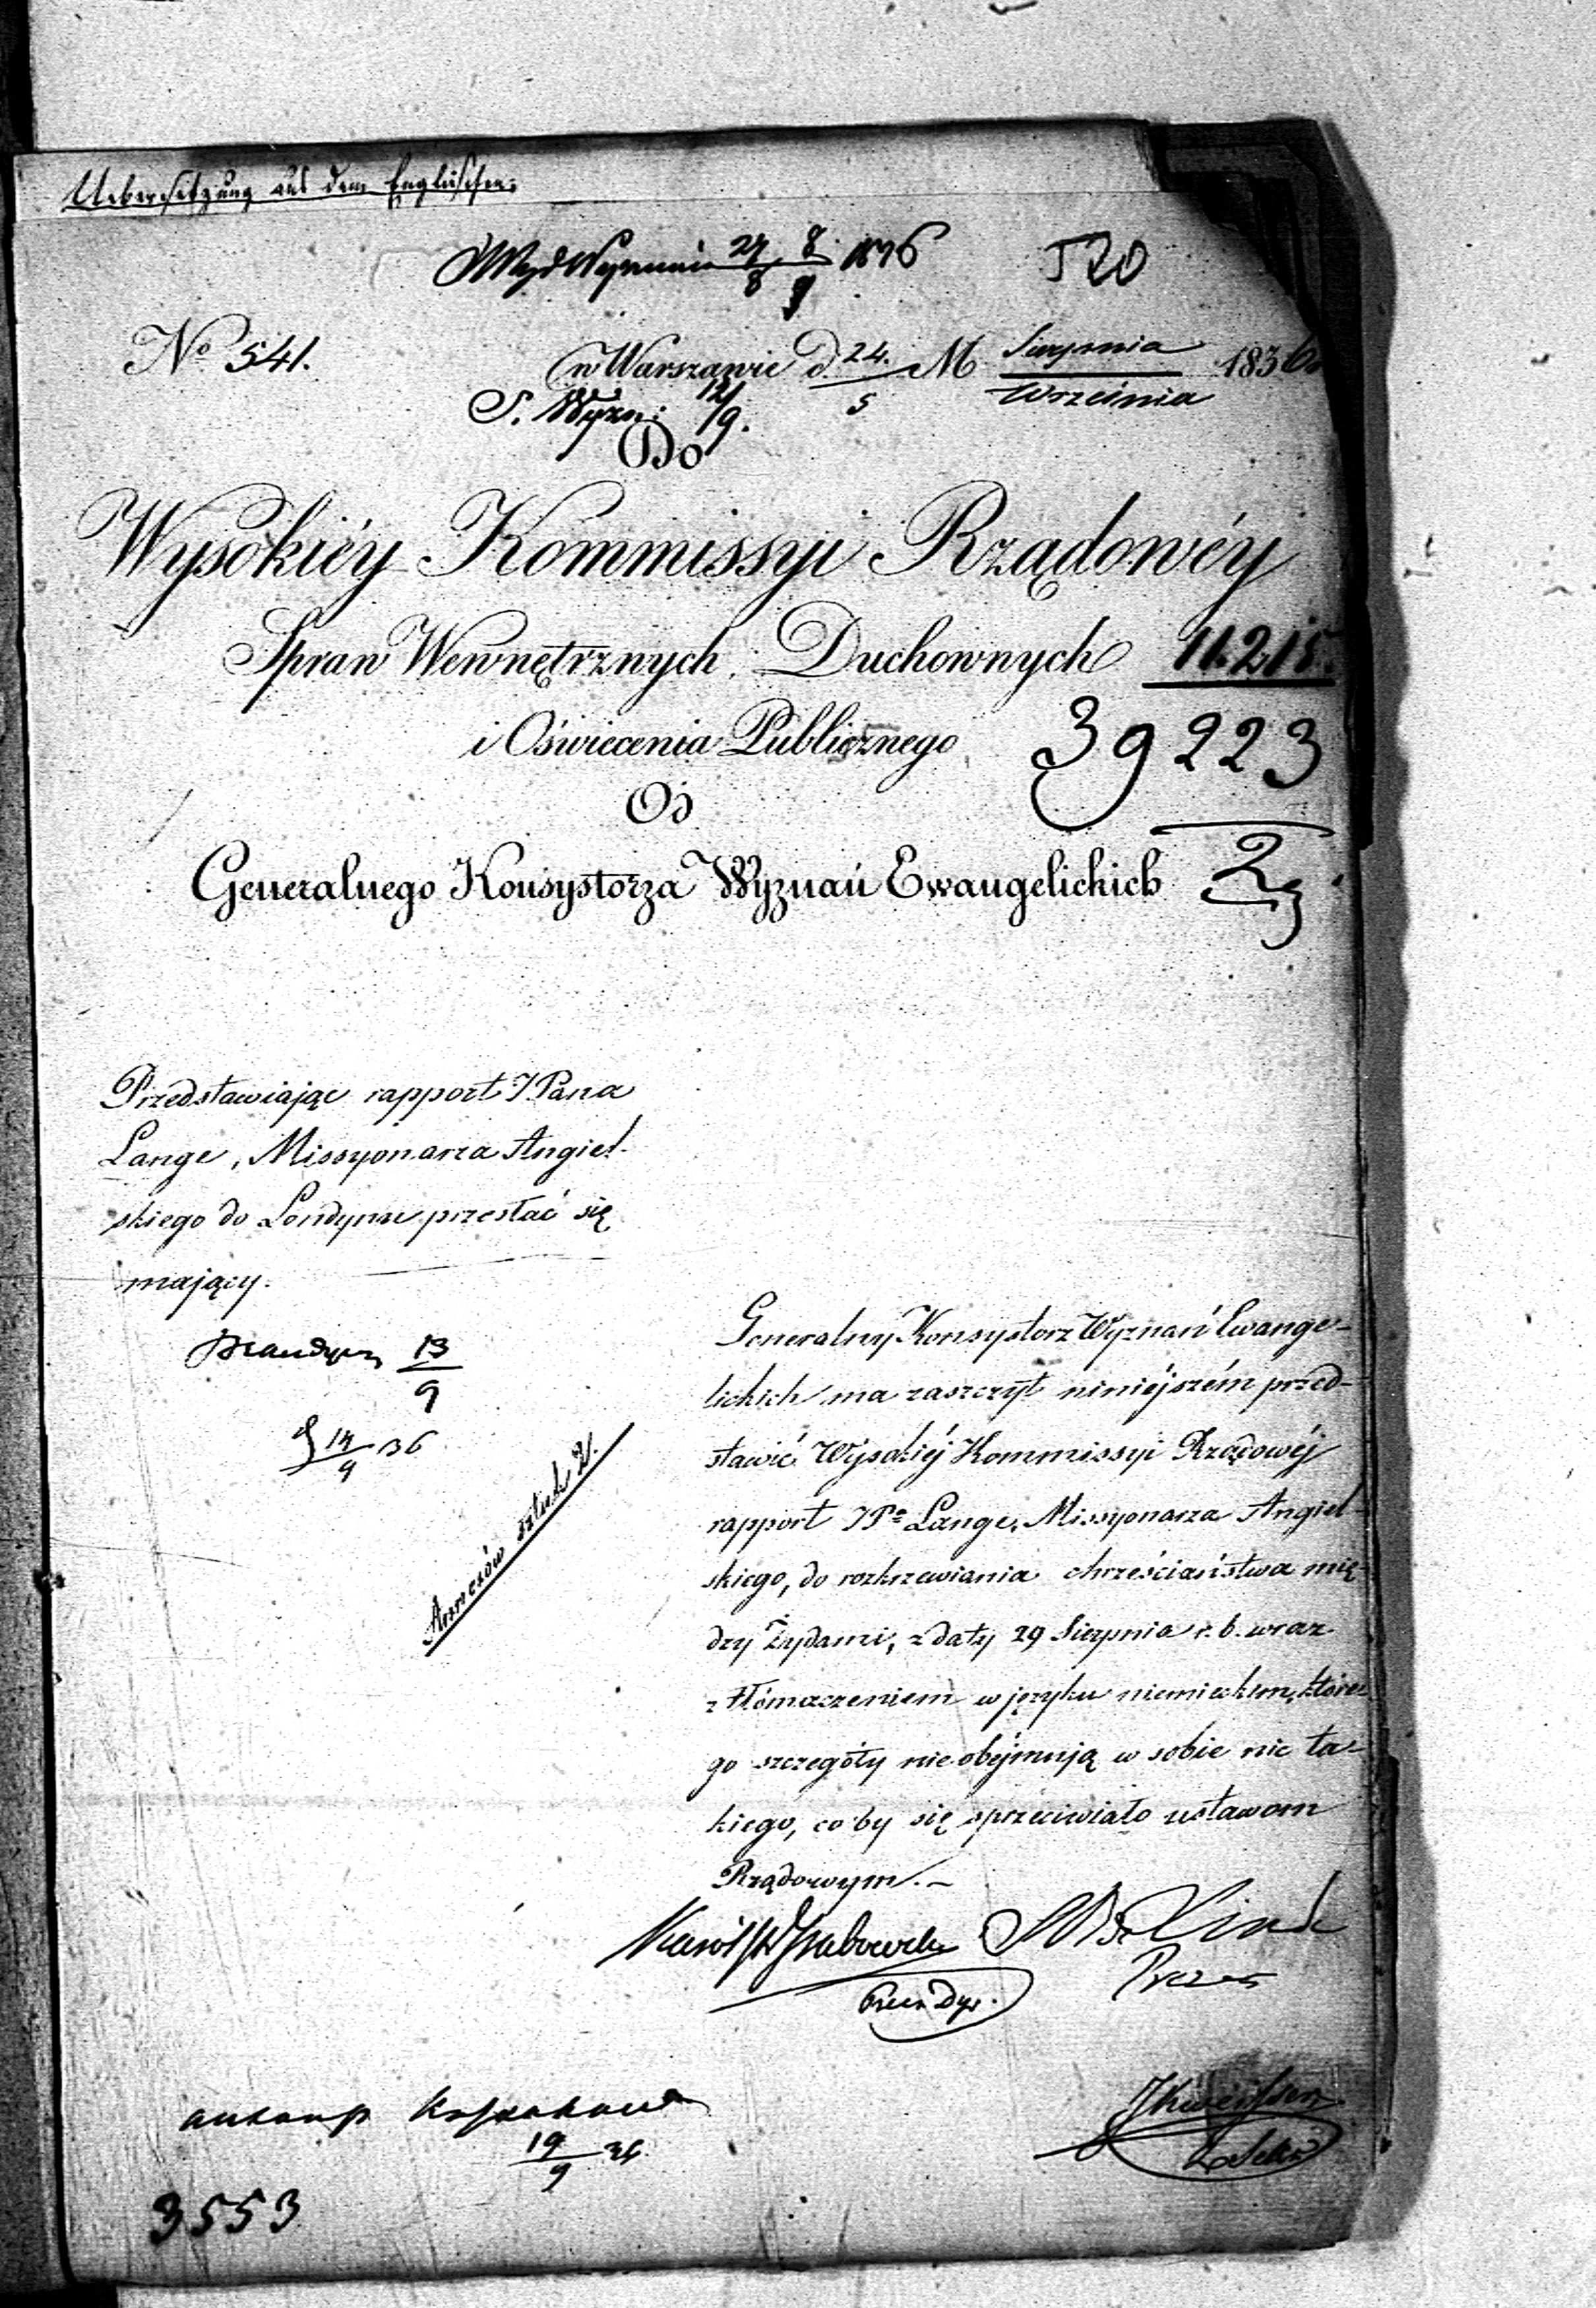 Uebersetzung aus dem Englischen.
27/8 8/9 1836
520
No 541.
w Warszawie d. 24./5 M Sierpnia/Września 1836
S. Wyzn: 12/9.
Do
Wysokiéy Kommissyi Rządowéy
Spraw Wewnętrznych, Duchownych
11.215.
i Oświecenia Publicznego
39223
Od
Generalnego Konsystorza Wyznań Ewangelickich
Przedstawiając rapport JPana
Lange, Missyonarza Angiel-
skiego do Londynu przesłać się
mający.
13/9
14/9 36
Annexów sztuk 2.
Generalny Konsystorz Wyznań Ewange-
lickich ma zaszczyt niniéjszém przed-
stawić Wysokiéj Kommissyi Rządowéj
rapport JPa Lange, Missyonarza Angiel-
skiego, do rozkrzewiania chrześciaństwa mię-
dzy Żydami, z daty 29 Sierpnia r. b. wraz
z tłómaczeniem w języku niemieckim, które-
go szczegóły nie obéjmują w sobie nic ta-
kiego, co by się sprzeciwiało ustawom
Rządowym.-
Linde
Prezes
19/9 36
3553